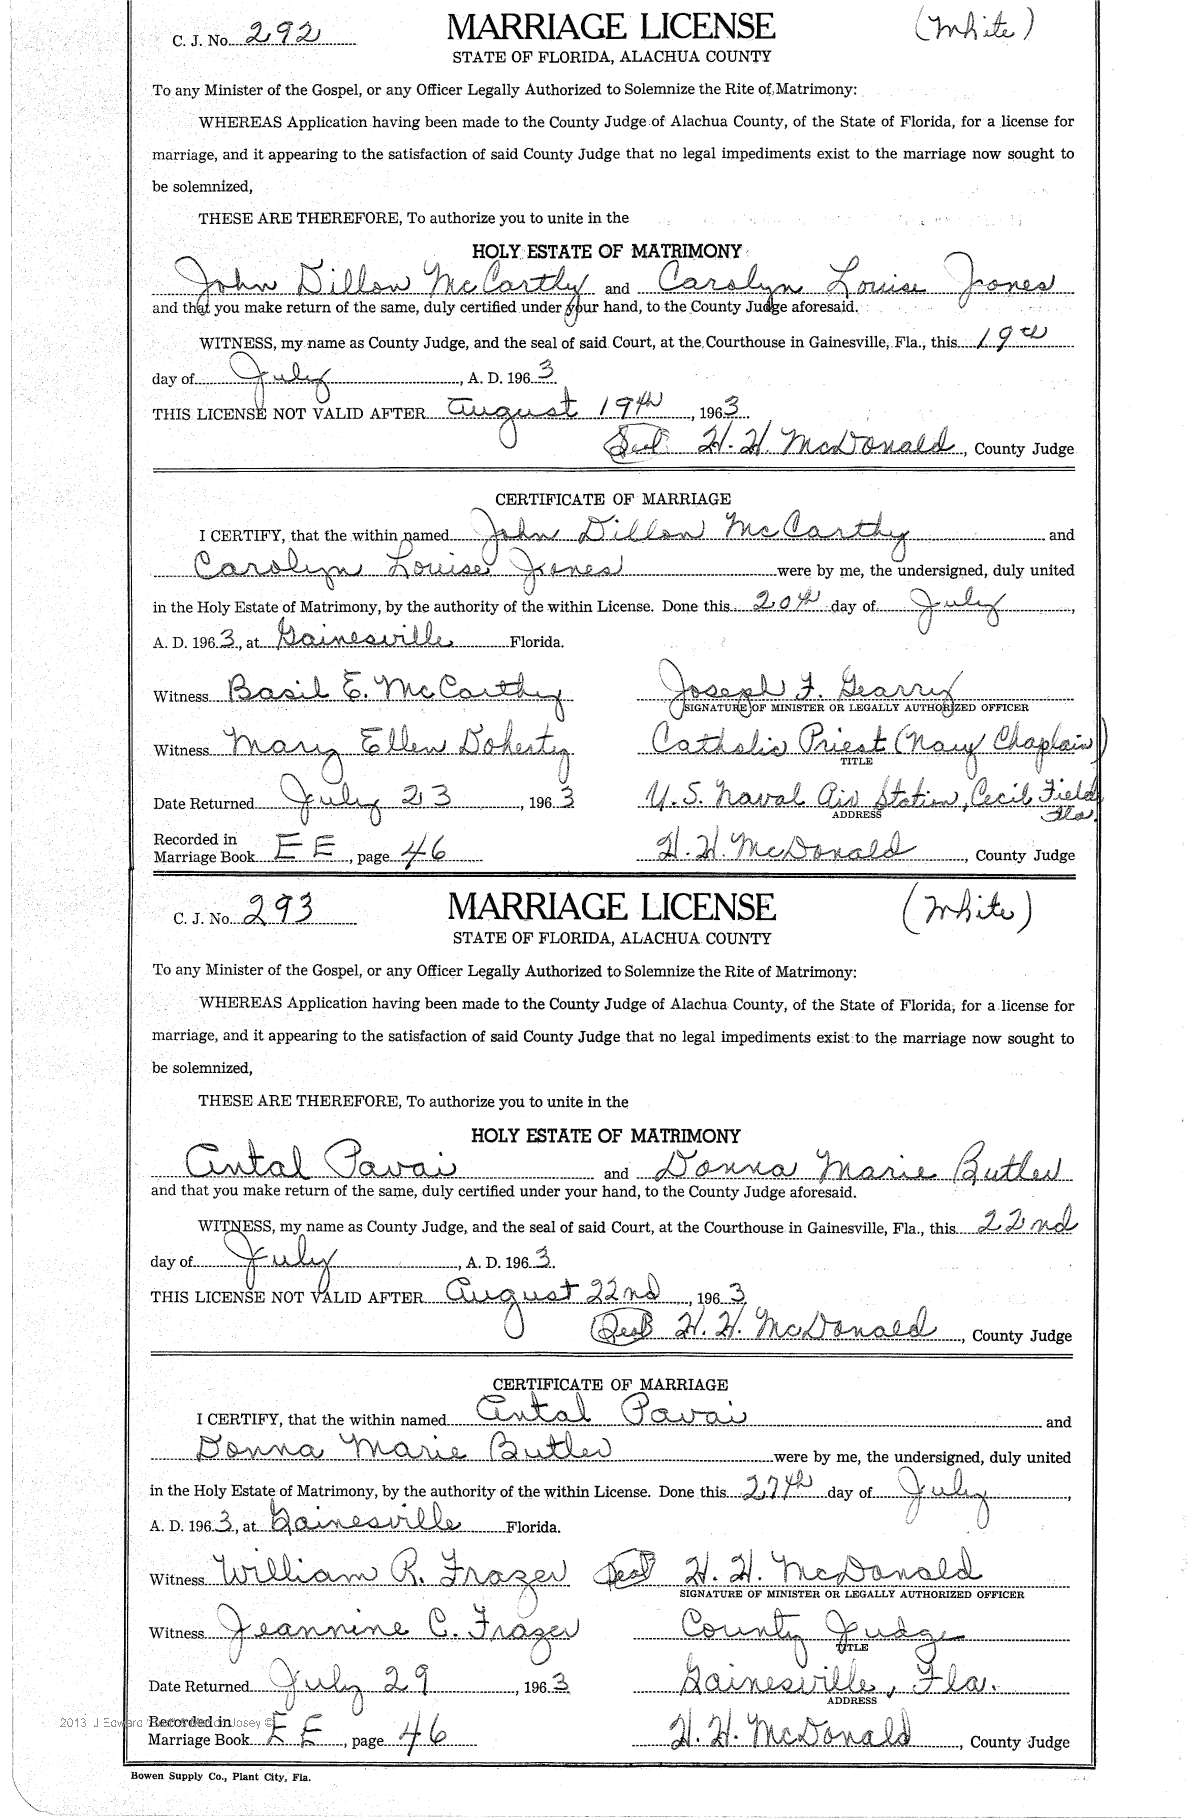 C. J. No. 292 MARRIAGE LICENSE (White)
STATE OF FLORIDA, ALACHUA COUNTY
To any Minister of the Gospel, or any Officer Legally Authorized to Solemnize the Rite of Matrimony:
WHEREAS Application having been made to the County Judge of Alachua County, of the State of Florida, for a license for
marriage, and it appearing to the satisfaction of said County Judge that no legal impediments exist to the marriage now sought to
be solemnized,
THESE ARE THEREFORE, To authorize you to unite in the
HOLY ESTATE OF MATRIMONY
John Dillon McCarthy and Carolyn Louise Jones
and that you make return of the same, duly certified under your hand, to the County Judge aforesaid.
WITNESS, my name as County Judge, and the seal of said Court, at the Courthouse in Gainesville, Fla., this 19th
day of July, A. D. 1963.
THIS LICENSE NOT VALID AFTER August 19th, 1963
(Seal) H. H. McDonald, County Judge
CERTIFICATE OF MARRIAGE
I CERTIFY, that the within named John Dillon McCarthy and
Carolyn Louise Jones were by me, the undersigned, duly united
in the Holy Estate of Matrimony, by the authority of the within License. Done this 20th day of July,
A. D. 1963, at Gainesville Florida.
Witness Basil E. McCarthy Joseph F. Gearry
SIGNATURE OF MINISTER OR LEGALLY AUTHORIZED OFFICER
Witness Mary Ellen Doherty Catholic Priest (Navy Chaplain)
TITLE
Date Returned July 23, 1963 U.S. Naval Air Station, Cecil Field,
ADDRESS Fla.
Recorded in
Marriage Book EE, page 46 H. H. McDonald, County Judge
C. J. No. 293 MARRIAGE LICENSE (White)
STATE OF FLORIDA, ALACHUA COUNTY
To any Minister of the Gospel, or any Officer Legally Authorized to Solemnize the Rite of Matrimony:
WHEREAS Application having been made to the County Judge of Alachua County, of the State of Florida, for a license for
marriage, and it appearing to the satisfaction of said County Judge that no legal impediments exist to the marriage now sought to
be solemnized,
THESE ARE THEREFORE, To authorize you to unite in the
HOLY ESTATE OF MATRIMONY
Antal Pavai and Donna Marie Butler
and that you make return of the same, duly certified under your hand, to the County Judge aforesaid.
WITNESS, my name as County Judge, and the seal of said Court, at the Courthouse in Gainesville, Fla., this 22nd
day of July, A. D. 1963.
THIS LICENSE NOT VALID AFTER August 22nd, 1963
(Seal) H. H. McDonald, County Judge
CERTIFICATE OF MARRIAGE
I CERTIFY, that the within named Antal Pavai and
Donna Marie Butler were by me, the undersigned, duly united
in the Holy Estate of Matrimony, by the authority of the within License. Done this 27th day of July,
A. D. 1963, at Gainesville Florida.
Witness William R. Frazer (Seal) H. H. McDonald
SIGNATURE OF MINISTER OR LEGALLY AUTHORIZED OFFICER
Witness Jeannine C. Frazer County Judge
TITLE
Date Returned July 29, 1963 Gainesville, Fla.
ADDRESS
2013 J Edward Josey ©
Recorded in
Marriage Book EE, page 46 H. H. McDonald, County Judge
Bowen Supply Co., Plant City, Fla.